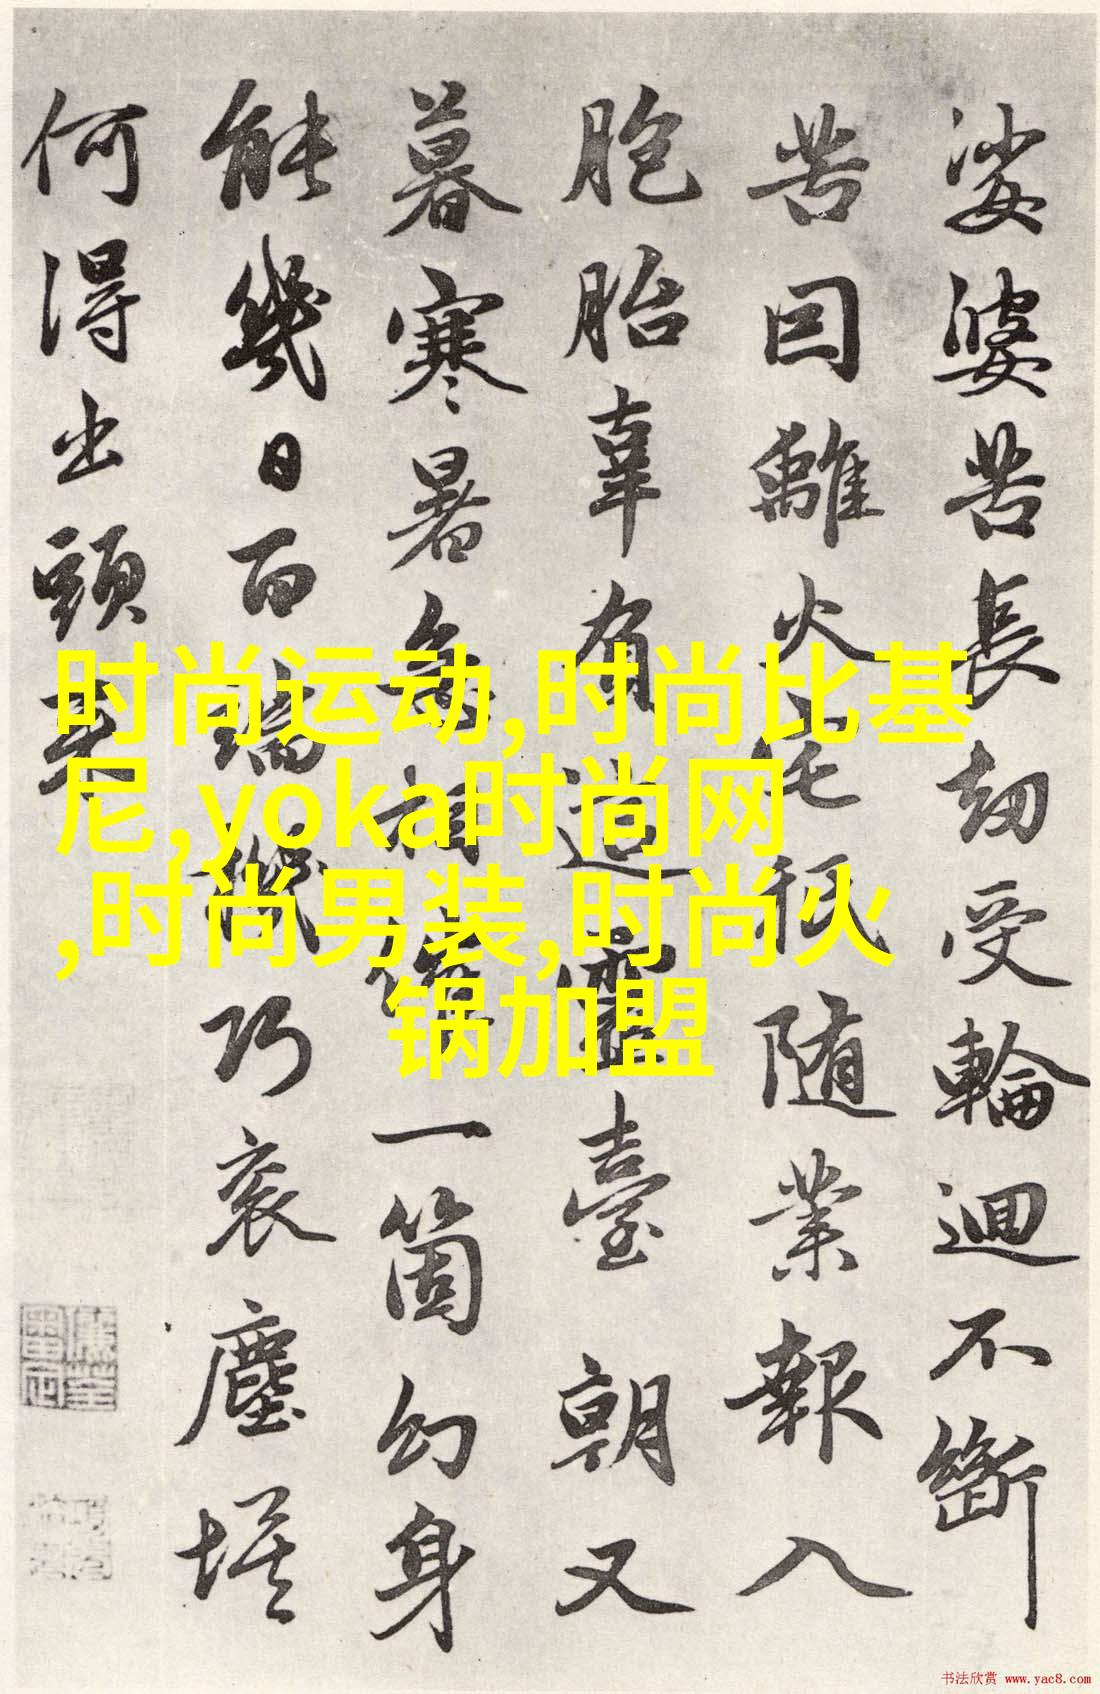 娑婆苦長劫受輪迴不斷
苦因離火宅秖隨業報入
胞胎辜負這靈臺朝又
暮寒暑急相催一箇幻身
能幾日百端機巧衮塵埃
何得出頭來
时尚运动,时尚比基
尼,yoka时尚网
,时尚男装,时尚火
锅加盟
书法欣赏 www.yac8.com